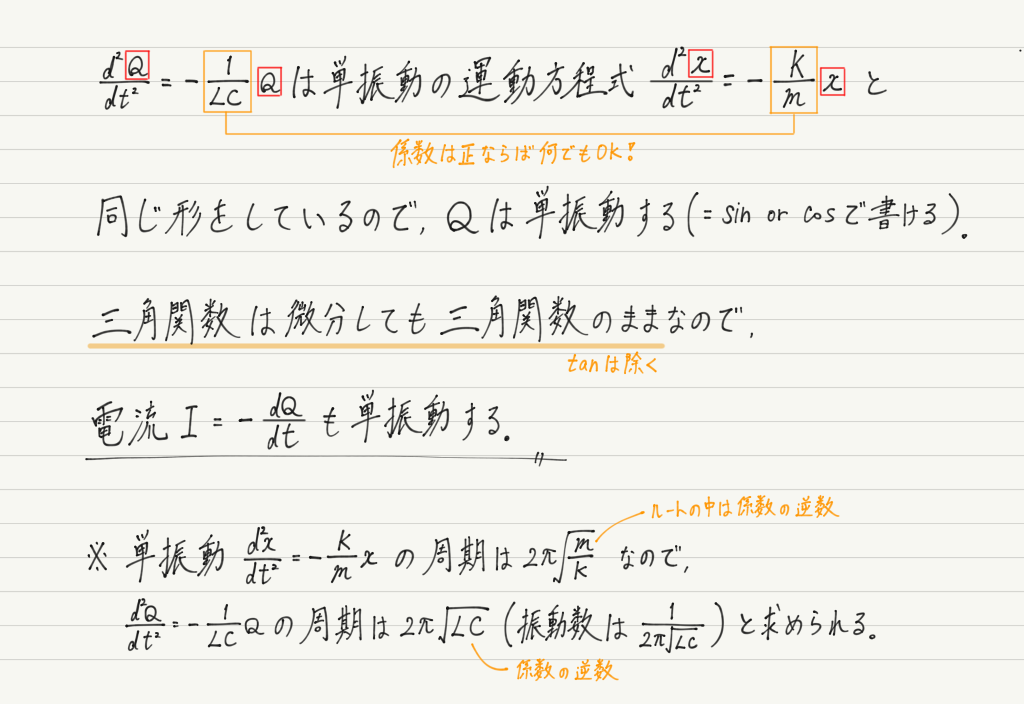 d²Q/dt² = - 1/LC Q は単振動の運動方程式 d²x/dt² = - k/m x と
係数は正ならば何でもOK!
同じ形をしているので, Qは単振動する(= sin or cosで書ける).
三角関数は微分しても三角関数のままなので,
tanは除く
電流 I = - dQ/dt も単振動する.
ルートの中は係数の逆数
※ 単振動 d²x/dt² = - k/m x の周期は 2π√(m/k) なので,
d²Q/dt² = - 1/LC Q の周期は 2π√LC (振動数は 1/2π√LC) と求められる.
係数の逆数